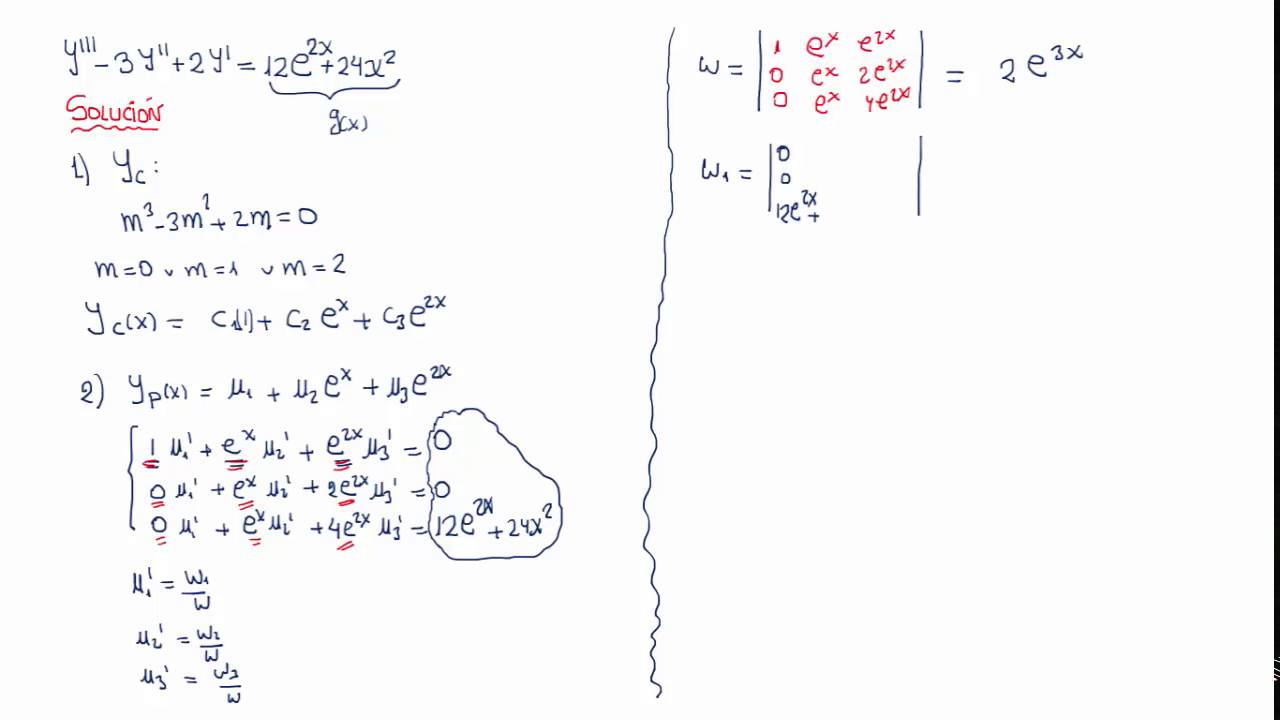 y''' - 3y'' + 2y' = 12e^{2x} + 24x²
g(x)
SOLUCIÓN
1) y_c :
m³ - 3m² + 2m = 0
m = 0 ∨ m = 1 ∨ m = 2
y_c(x) = c₁(1) + c₂ e^x + c₃ e^{2x}
2) y_p(x) = μ₁ + μ₂ e^x + μ₃ e^{2x}
1 μ₁' + e^x μ₂' + e^{2x} μ₃' = 0
0 μ₁' + e^x μ₂' + 2e^{2x} μ₃' = 0
0 μ₁' + e^x μ₂' + 4e^{2x} μ₃' = 12e^{2x} + 24x²
μ₁' = w₁/w
μ₂' = w₂/w
μ₃' = w₃/w
1 e^x e^{2x}
w = 0 e^x 2e^{2x} = 2e^{3x}
0 e^x 4e^{2x}
0
w₁ = 0
12e^{2x} +